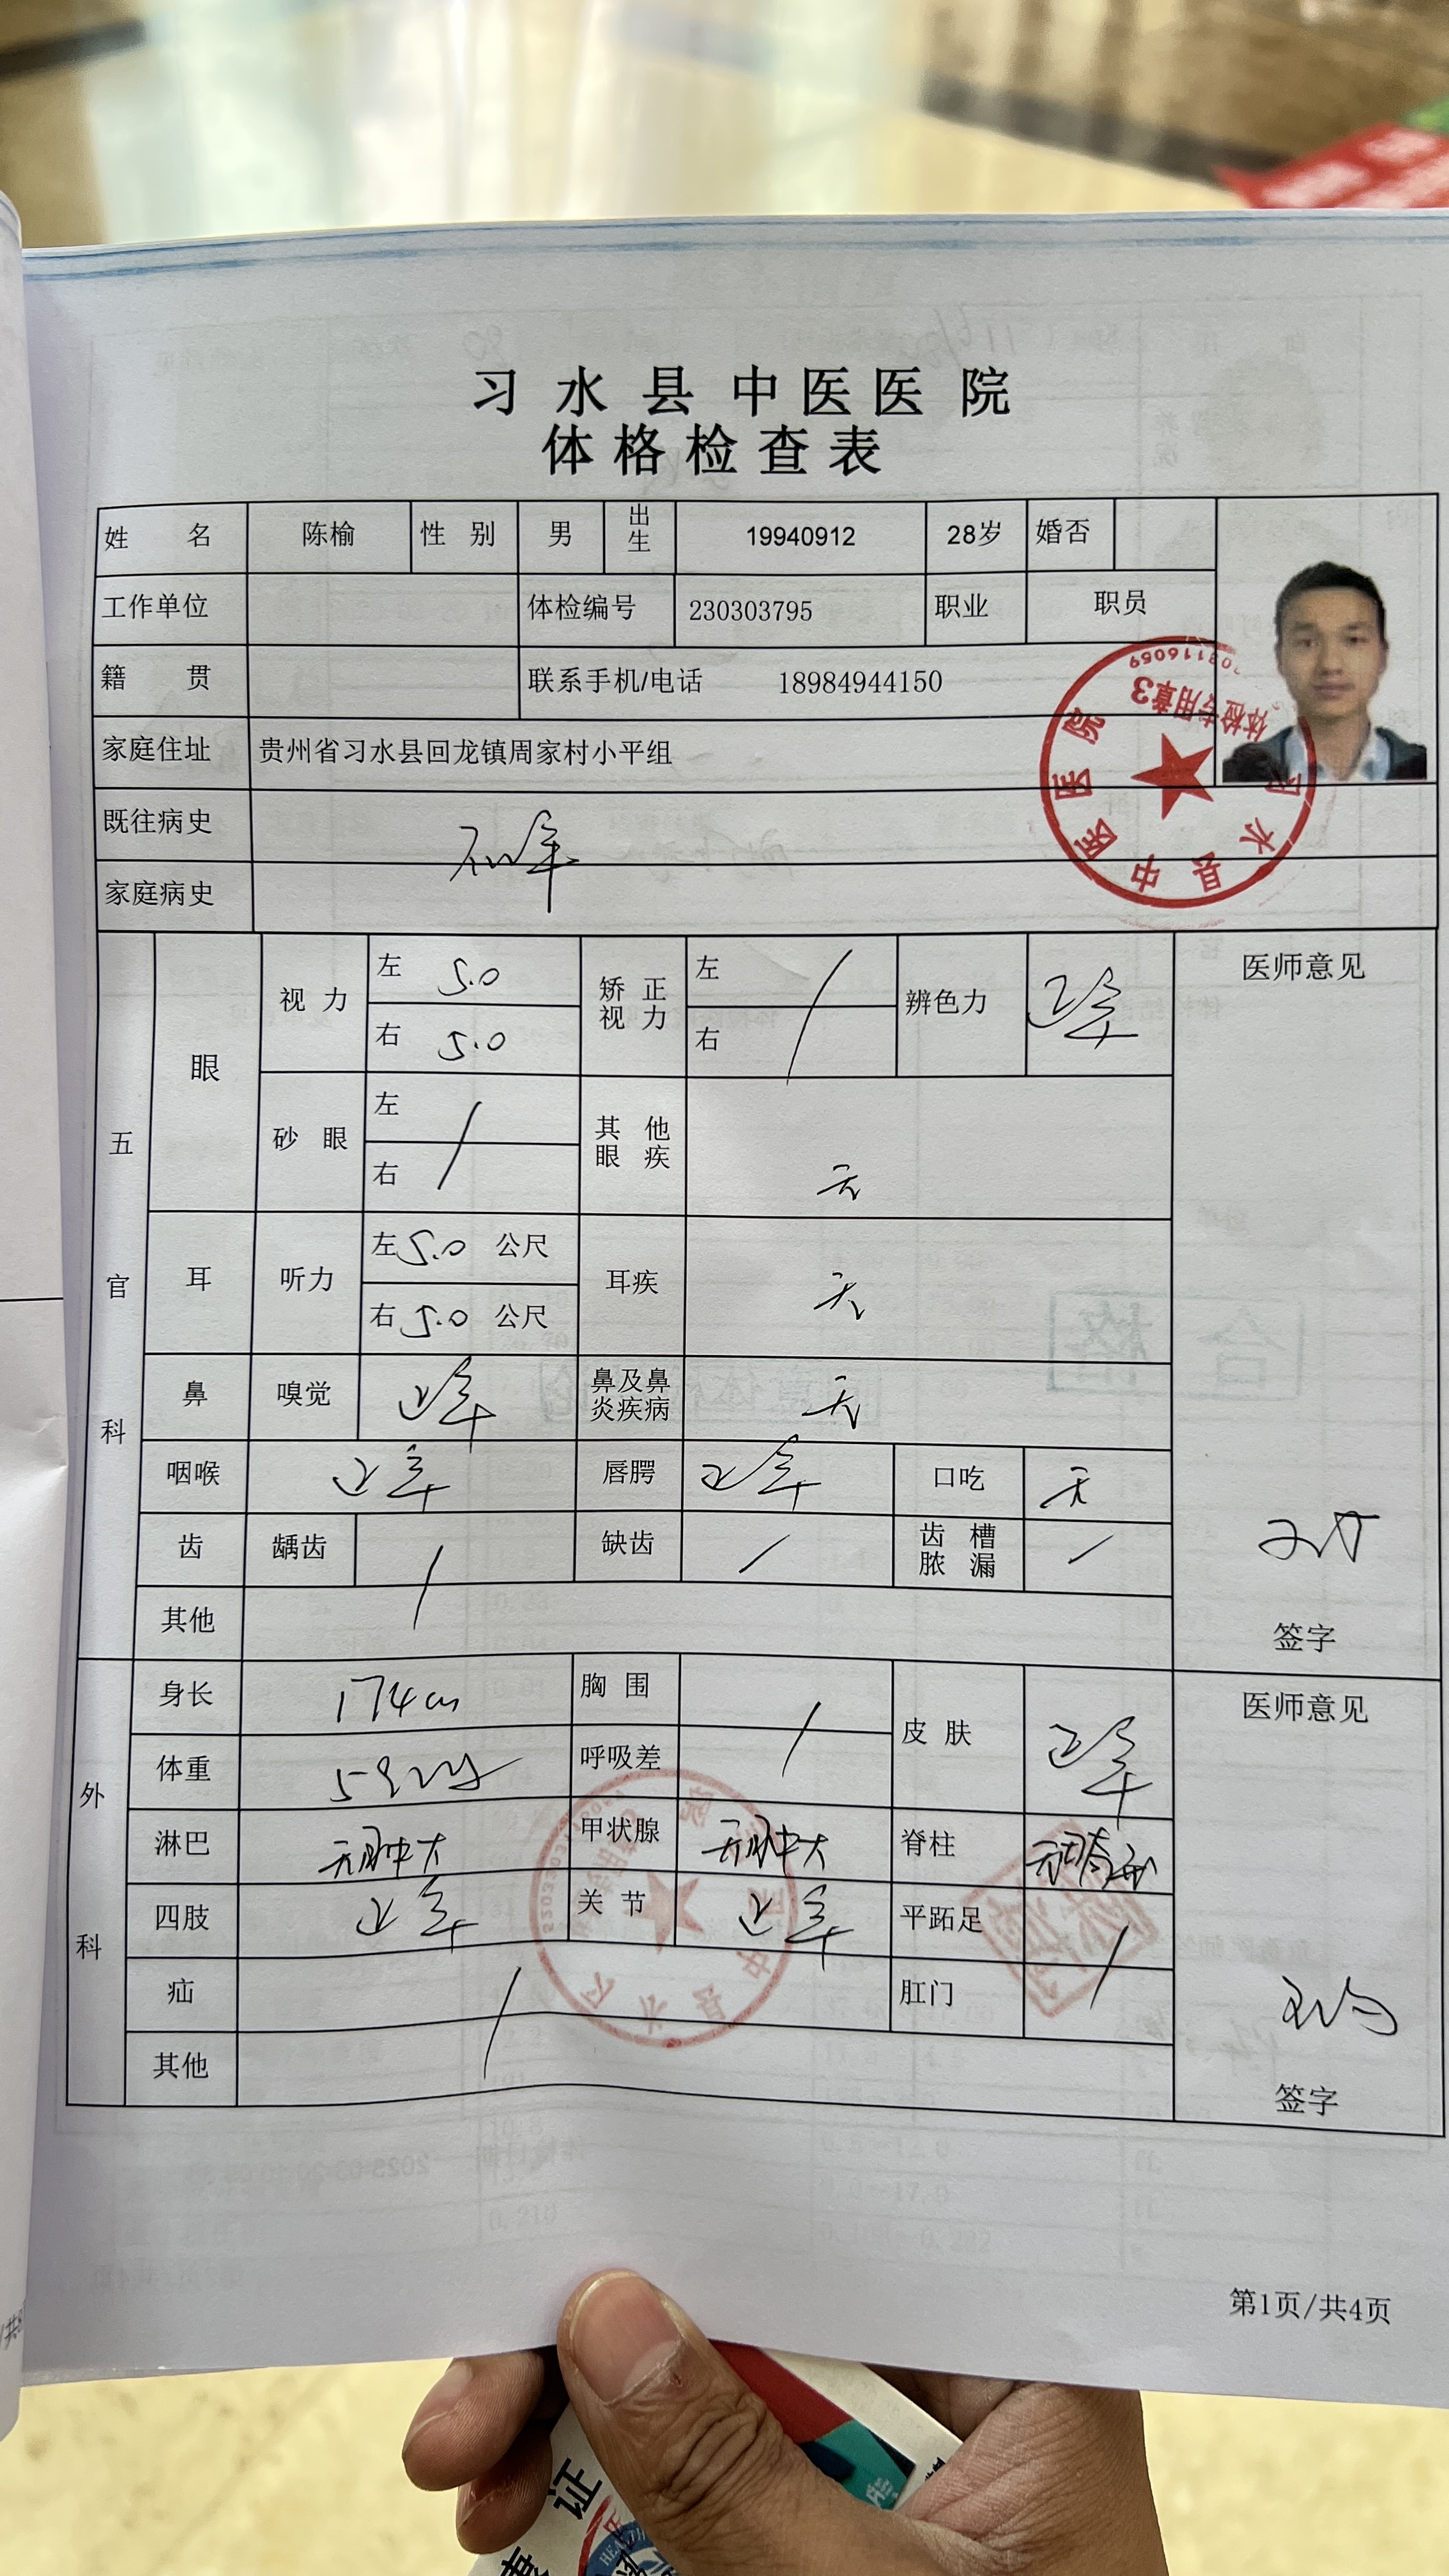 习水县中医医院
体格检查表
姓名 陈榆 性别 男 出生 19940912 28岁 婚否
工作单位 体检编号 230303795 职业 职员
籍贯 联系手机/电话 18984944150
家庭住址 贵州省习水县回龙镇周家村小平组
既往病史
家庭病史
体检专用章3
习水县中医医院
五官科 眼 视力 左 5.0 矫正视力 左 / 辨色力 正常 医师意见
右 5.0 右
砂眼 左 / 其他眼疾 无
右
耳 听力 左 5.0 公尺 耳疾 无
右 5.0 公尺
鼻 嗅觉 正常 鼻及鼻炎疾病 无
咽喉 正常 唇腭 正常 口吃 无
齿 龋齿 / 缺齿 / 齿槽脓漏 /
其他
签字
外科 身长 174cm 胸围 / 皮肤 正常 医师意见
体重 59kg 呼吸差
淋巴 无肿大 甲状腺 无肿大 脊柱
四肢 正常 关节 正常 平跖足 /
疝 / 肛门
其他
签字
第1页/共4页
证